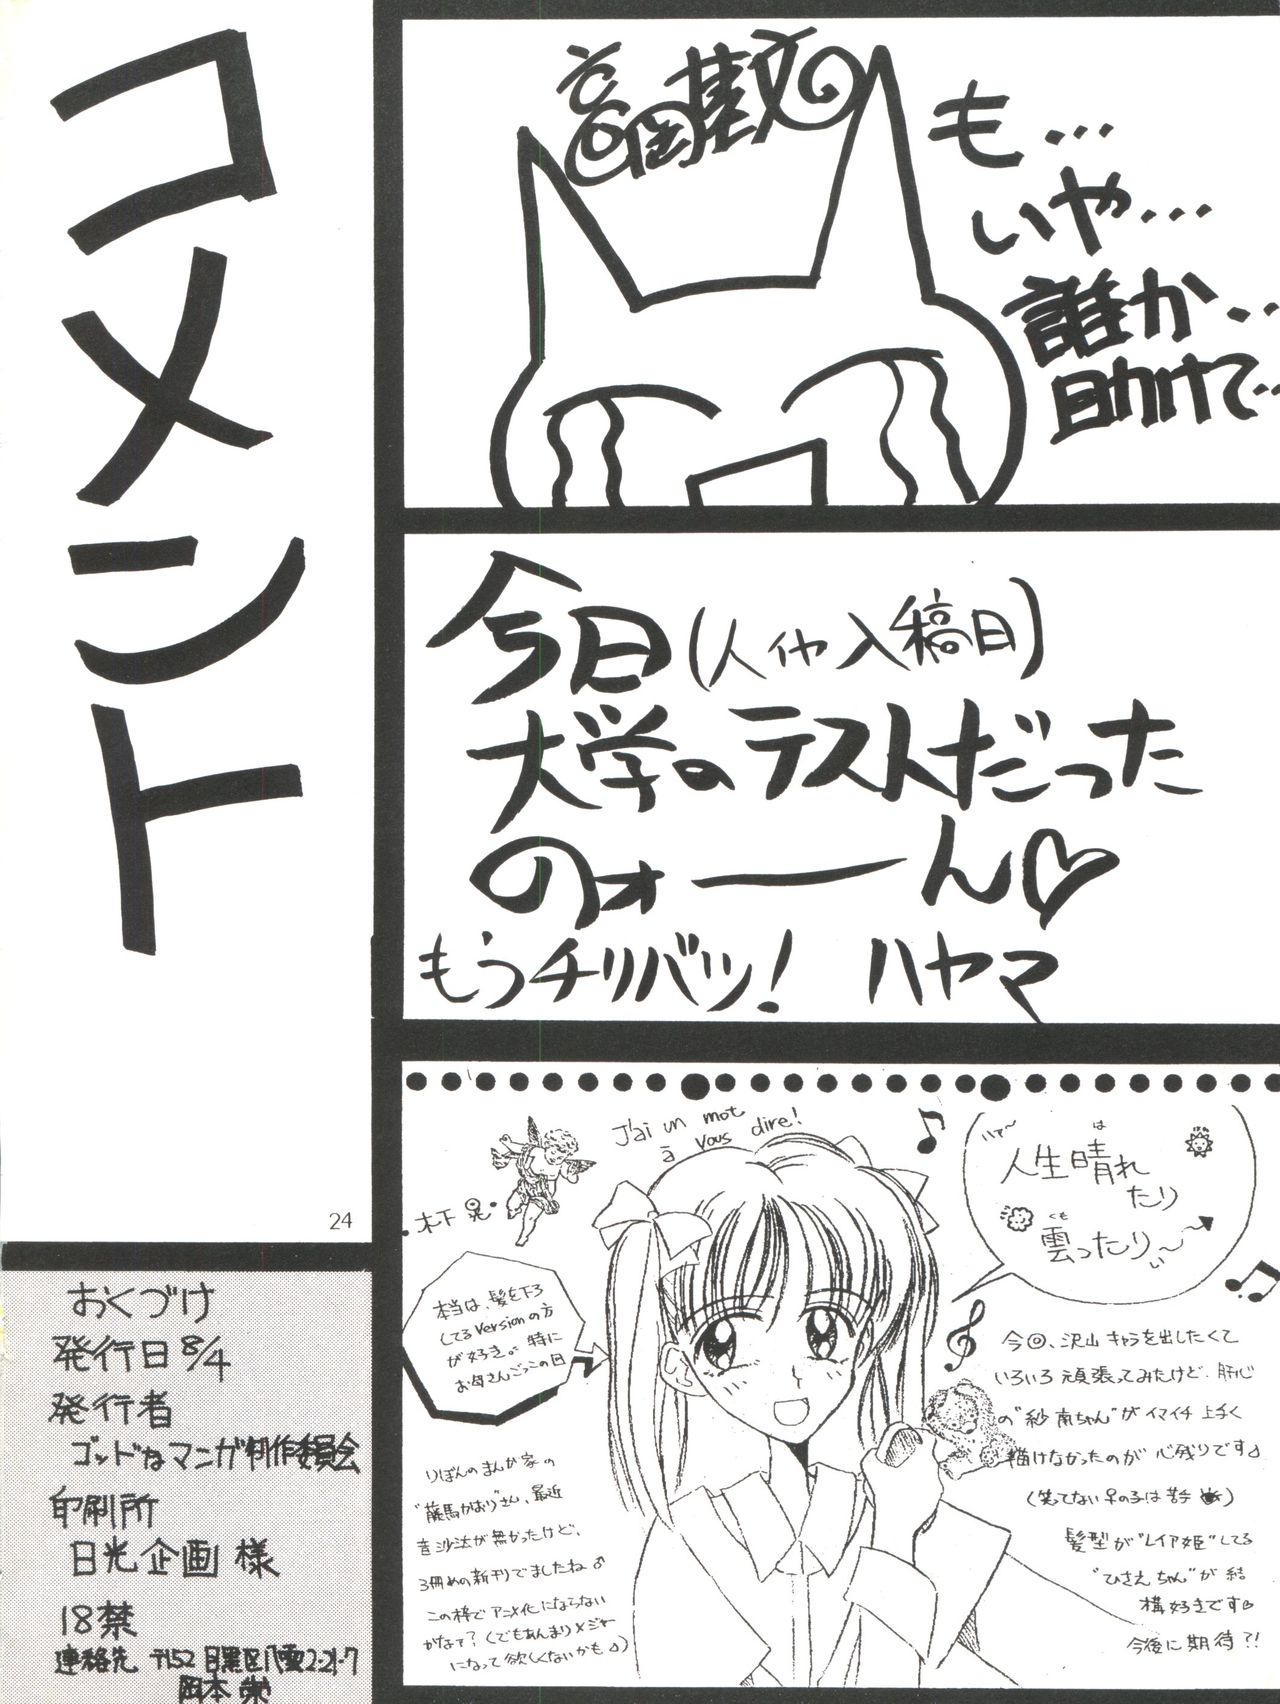 コメント
高岡基文
も…
いや…
誰か‥
助けて‥
今日(人イヤ入稿日)
大学のテストだった
のォーーん♡
もうチリバツ! ハヤマ
J'ai un mot
à vous dire!
木下 晃
ハァ〜
人生晴れ
は
たり
ぱれ
曇ったり〜
くも
い
本当は、髪を下ろ
してるVersionの方
が好き。特に
お母さんごっこの回
りぼんのまんが家の
"藤馬かおり"さん、最近
音沙汰が無かったけど、
3冊めの新刊でましたね♂
この枠でアニメ化にならない
かなぁ?(でもあんまりメジャー
になって欲しくないかも♪)
今回、沢山キャラを出したくて
いろいろ頑張ってみたけど、肝心
の"紗南ちゃん"がイマイチ上手く
描けなかったのが心残りです♪
(笑ってない♀の子は苦手)
髪型が"レイア姫"してる
"ひさえちゃん"が結
構好きです♡
今後に期待?!
24
おくづけ
発行日8/4
発行者
ゴッドなマンガ制作委員会
印刷所
日光企画 様
18禁
連絡先 〒152 目黒区八雲2-21-7
岡本 栄